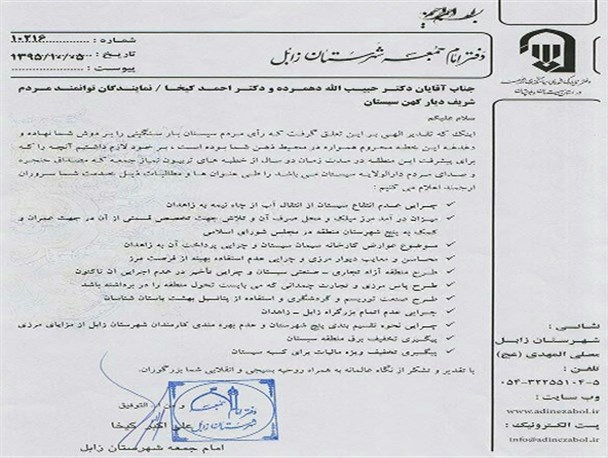 دفتر امام جمعه شهرستان زابل
شماره : ۱۰۲۱۶
تاریخ : ۱۳۹۵/۱۰/۰۵
پیوست :
جناب آقایان دکتر حبیب الله دهمرده و دکتر احمد کیخا / نمایندگان توانمند مردم
شریف دیار کهن سیستان
سلام علیکم
اینک که تقدیر الهی بر این تعلق گرفت که رأی مردم سیستان بار سنگینی را بر دوش شما نهاده و
دغدغه این خطه محروم همواره در محیط ذهن شما بوده است ، بر خود لازم دانستم آنچه را که
برای پیشرفت این منطقه در مدت زمان دو سال از خطبه های تریبون نماز جمعه که مصداق حنجره
و صدای مردم دارالولایه سیستان می باشد را طی عنوان ها و مطالبات ذیل خدمت شما سروران
ارجمند اعلام می کنیم :
✓ چرایی عدم انتفاع سیستان از انتقال آب از چاه نیمه به زاهدان
✓ میزان در آمد مرز میلک و محل صرف آن و تلاش جهت تخصیص قسمتی از آن در جهت عمران و
کمک به پنج شهرستان منطقه در مجلس شورای اسلامی
✓ موضوع عوارض کارخانه سیمان سیستان و چرایی پرداخت آن به زاهدان
✓ محاسن و معایب دیوار مرزی و چرایی عدم استفاده بهینه از فرصت مرز
✓ طرح منطقه آزاد تجاری - صنعتی سیستان و چرایی تأخیر در عدم اجرایی آن تاکنون
✓ طرح پاس مرزی و تجارت چمدانی که می بایست تحول منطقه را در برداشته باشد
✓ طرح صنعت توریسم و گردشگری و استفاده از پتانسیل بهشت باستان شناسان
✓ چرایی عدم اتمام بزرگراه زابل - زاهدان
✓ چرایی نحوه تقسیم بندی پنج شهرستان و عدم بهره مندی کارمندان شهرستان زابل از مزایای مرزی
✓ پیگیری تخفیف برق منطقه سیستان
✓ پیگیری تخفیف ویژه مالیات برای کسبه سیستان
با تقدیر و تشکر از نگاه عالمانه به همراه روحیه بسیجی و انقلابی شما بزرگواران.
و من الله التوفیق
علی اکبر کیخا
امام جمعه شهرستان زابل
دفتر امام جمعه
شهرستان زابل
نشانی :
شهرستان زابل
مصلی المهدی (عج)
تلفن :
۰۵۴-۳۲۲۵۵۱۰۴-۵
وب سایت :
www.adinezabol.ir
پست الکترونیک :
info@adinezabol.ir